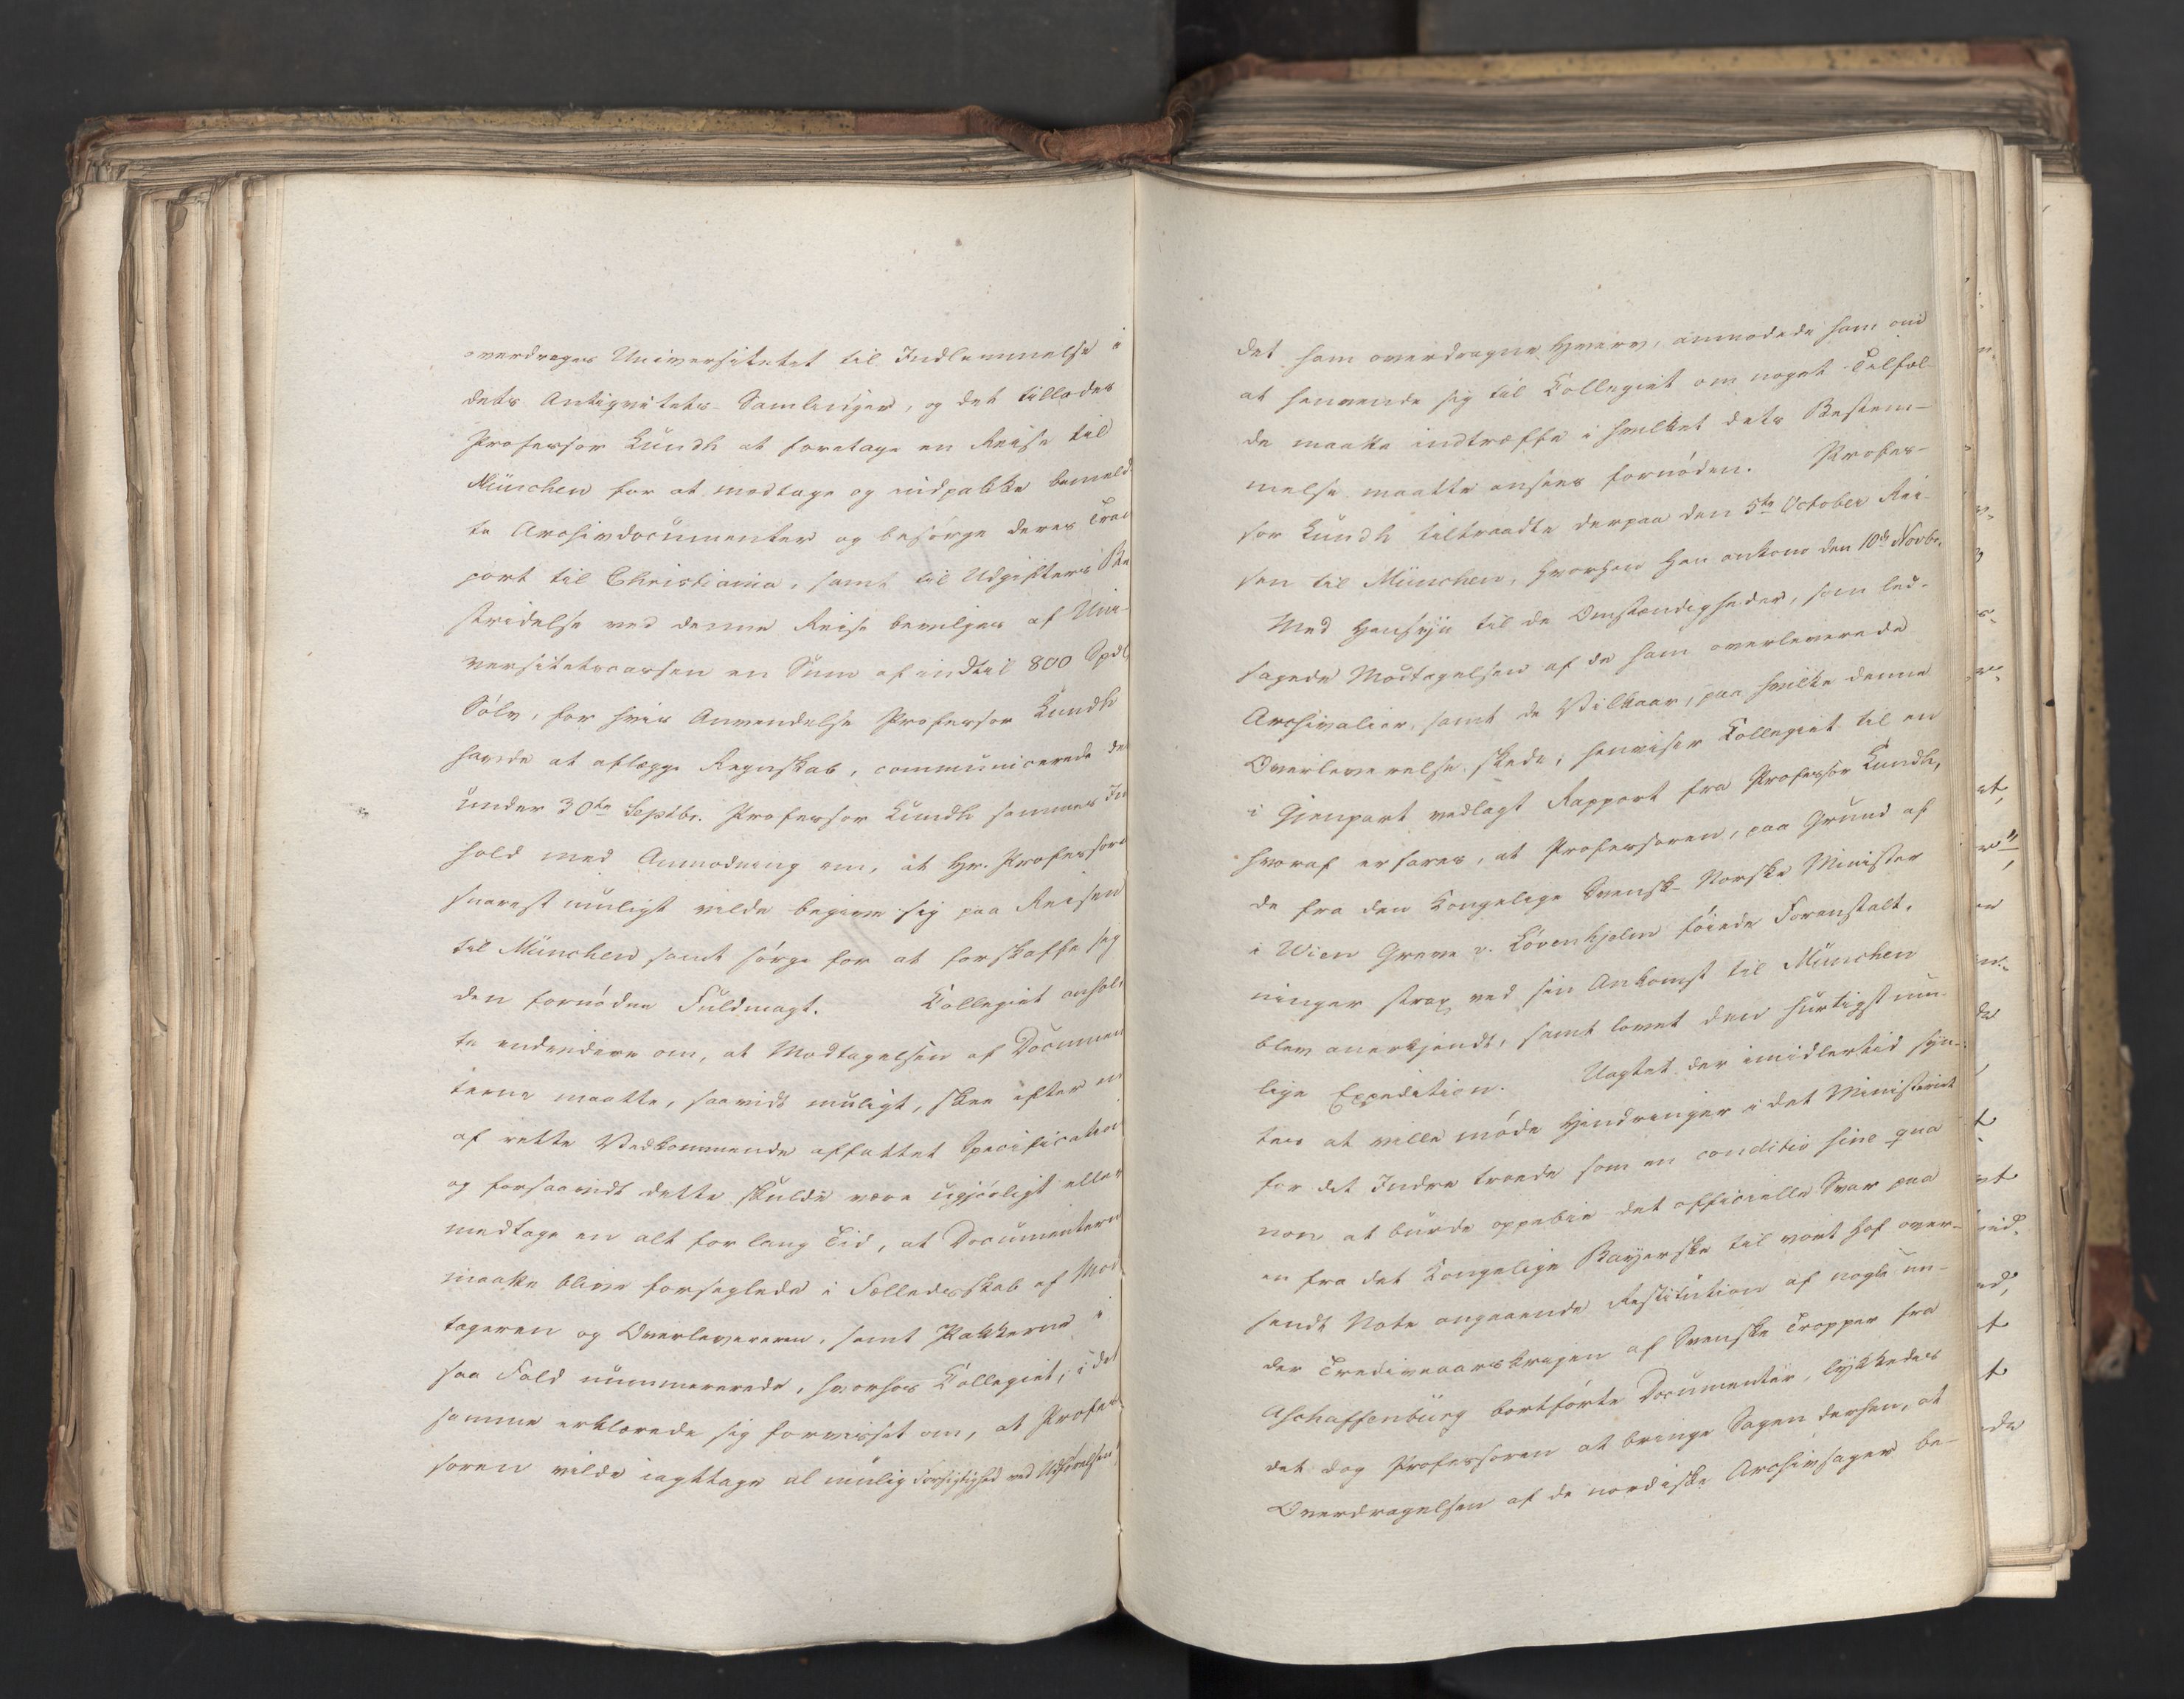 overdrages Universitetet til Indlemmelse i
dets Antiqvitets-Samlinger, og det tillodes
Professor Lundh at foretage en Reise til
München for at modtage og nedpakke bemeld
te Archivdocumenter og besörge deres Tran
port til Christiania, samt til Udgifters Be
stridelse ved denne Reise bevilges af Uni-
versitetscassen en Sum af indtil 800 Spdl
Sölv, for hvis Anvendelse Professor Lundh
havde at aflægge Regnskab, communicerede de
under 30te Septbr. Professor Lundh sammes In
hold med Anmodning om, at Hr. Professore
snarest muligt vilde begive sig paa Reisen
til München samt sörge for at forskaffe sig
den fornödne Fuldmagt. Collegiet anhol
te endvidere om, at Modtagelsen af Documen
terne maatte, saavidt muligt, skee efter en
af rette Vedkommende affattet Specification
og forsaavidt dette skulde være ugjörligt eller
medtage en alt for lang Tid, at Documentern
maatte blive forseglede i Fælledsskab af Mod
tageren og Overlevereren, samt Pakkerne i
saa Fald nummererede, hvorhos Collegiet, i det
samme erklærede sig forvisset om, at Profes
soren vilde iagttage al mulig Forsigtighed ved Udförelsen
det ham overdragne Hverv, anmodede ham om
at henvende sig til Collegiet om noget Tilfæl-
de maatte indtræffe i hvilket dets Bestem-
melse maatte ansees fornöden. Profes-
sor Lundh tiltraadte derpaa den 5te October Rei-
sen til München, hvorhen han ankom den 10de Novbr.
Med Hensyn til de Omstændigheder, som led-
sagede Modtagelsen af de ham overleverede
Archivalier, samt de Vilkaar, paa hvilke denne
Overleverelse skede, henviser Collegiet til en
i Gjenpart vedlagt Rapport fra Professor Lundh,
hvoraf erfares, at Professoren, paa Grund af
de fra den Kongelige Svensk-Norske Minister
i Wien Greve v. Lövenhjelm föiede Foranstalt-
ninger strax ved sin Ankomst til München
blev anerkjendt, samt lovet den hurtigst mu-
lige Expedition. Uagtet der imidlertid syn-
tes at ville möde Hindringer i det Ministeriet
for det Indre troede som en conditio sine qua
non at burde oppebie det officielle Svar paa
en fra det Kongelige Bayerske til vort Hof over-
sendt Note angaaende Restitution af nogle un-
der Trediveaarskrigen af Svenske Tropper fra
Aschaffenbürg bortförte Documenter, lykkedes
det dog Professoren at bringe Sagen derhen, at
Overdragelsen af de nordiske Archivsager be-